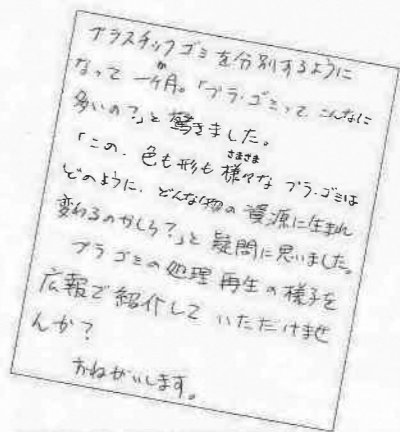 プラスチックゴミを分別するように
なって一ヶ月。「プラ・ゴミって こんなに
多いの?」と驚きました。
「この、色も形も様々な プラ・ゴミは
どのように、どんな物の資源に生まれ
変わるのかしら?」と疑問に思いました。
プラゴミの処理再生の様子を
広報で紹介して いただけませ
んか?
おねがいします。